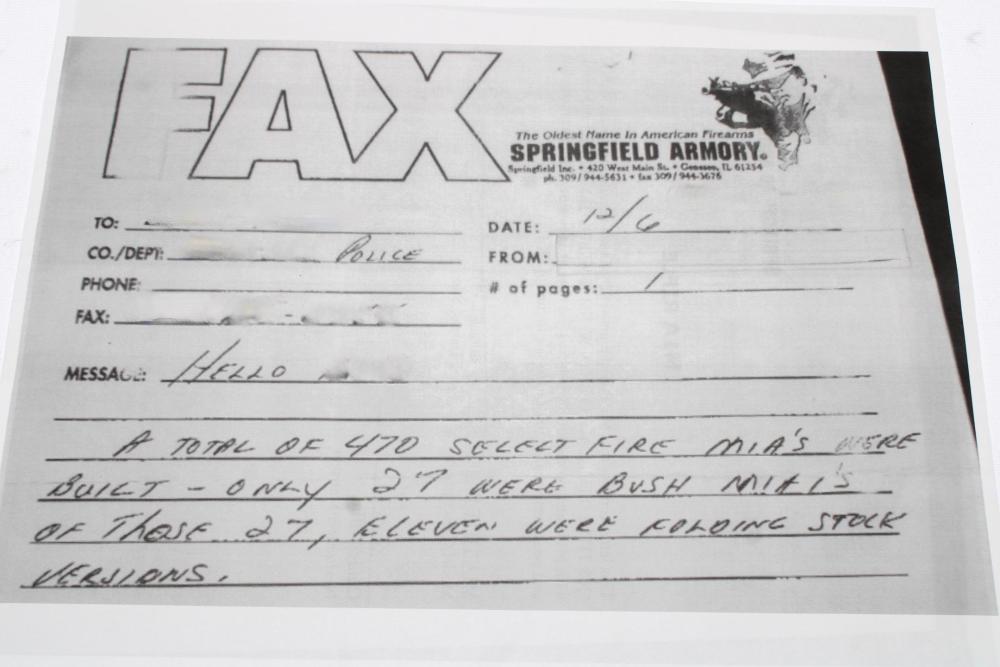 FAX
The Oldest Name In American Firearms
SPRINGFIELD ARMORY®
Springfield Inc. • 420 West Main St. • Geneseo, IL 61254
ph. 309/944-5631 • fax 309/944-3676
TO:
DATE: 12/6
CO./DEPT: POLICE
FROM:
PHONE:
# of pages: 1
FAX:
MESSAGE: HELLO
A TOTAL OF 470 SELECT FIRE M1A'S WERE
BUILT - ONLY 27 WERE BUSH M1A1'S
OF THOSE 27, ELEVEN WERE FOLDING STOCK
VERSIONS.